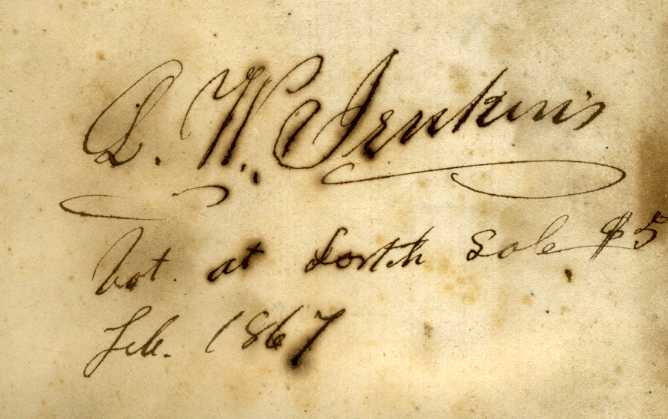 L. W. Jenkins
Bot. at Sale $5
Feb. 1867